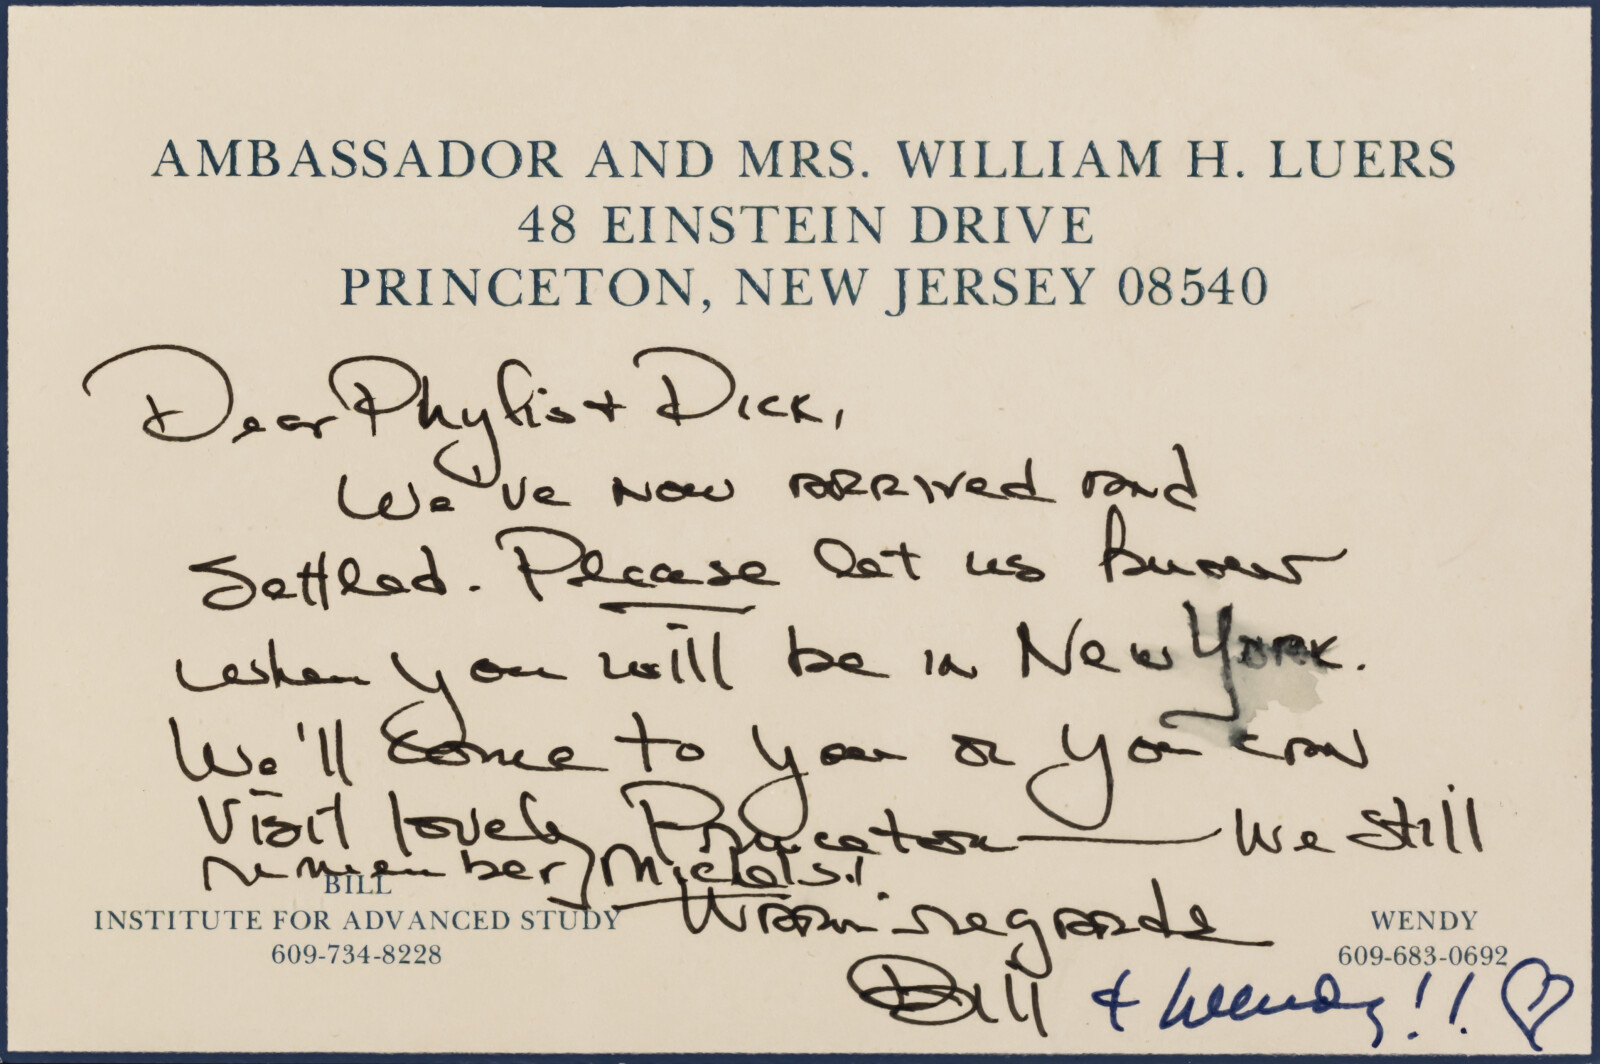 AMBASSADOR AND MRS. WILLIAM H. LUERS
48 EINSTEIN DRIVE
PRINCETON, NEW JERSEY 08540
Dear Phylis + Dick,
We've now arrived and
settled. Please let us know
when you will be in New York.
We'll come to you or you can
visit lovely Princeton — We still
remember
Warm regards
Bill & Wendy!! ♡
BILL
INSTITUTE FOR ADVANCED STUDY
609-734-8228
WENDY
609-683-0692